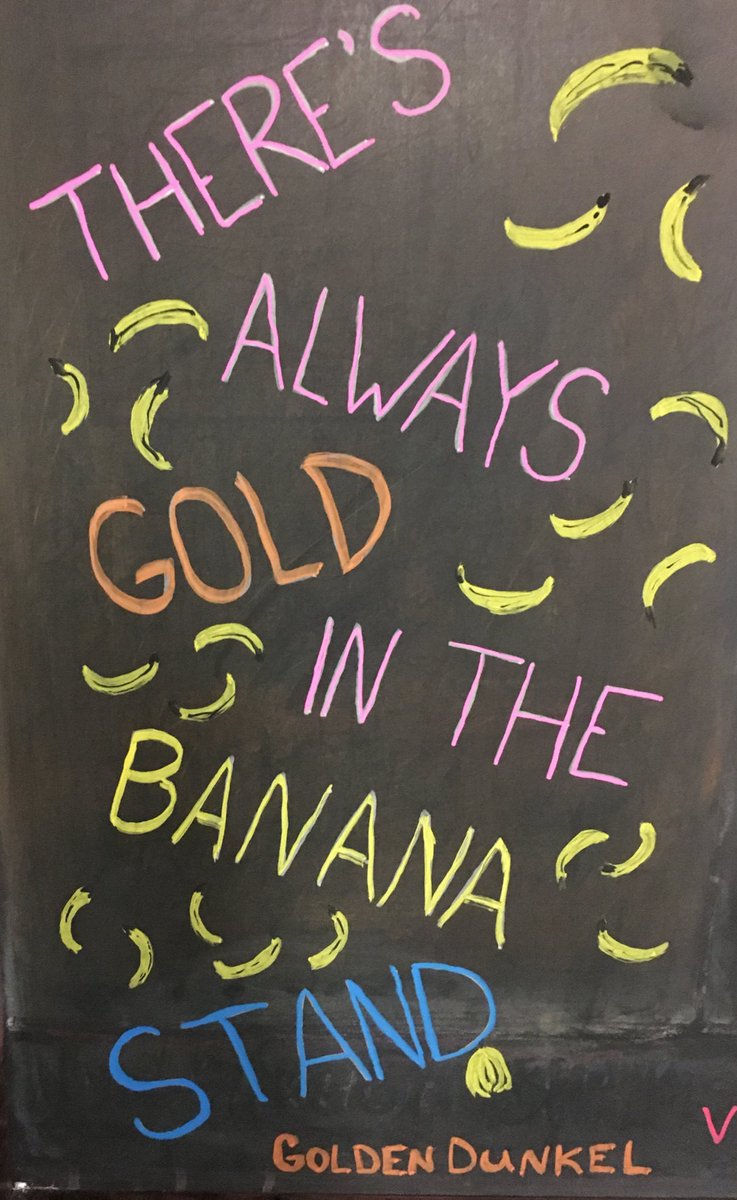 THERE'S
ALWAYS
GOLD
IN THE
BANANA
STAND
GOLDEN DUNKEL
V